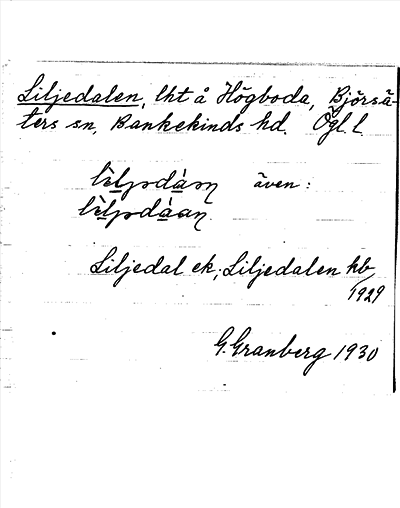 Liljedalen, lht å Högboda, Björsä-
ters sn, Bankekinds hd. Ögl. l.
även:
Liljedal ek; Liljedalen hb
1929
G. Granberg 1930